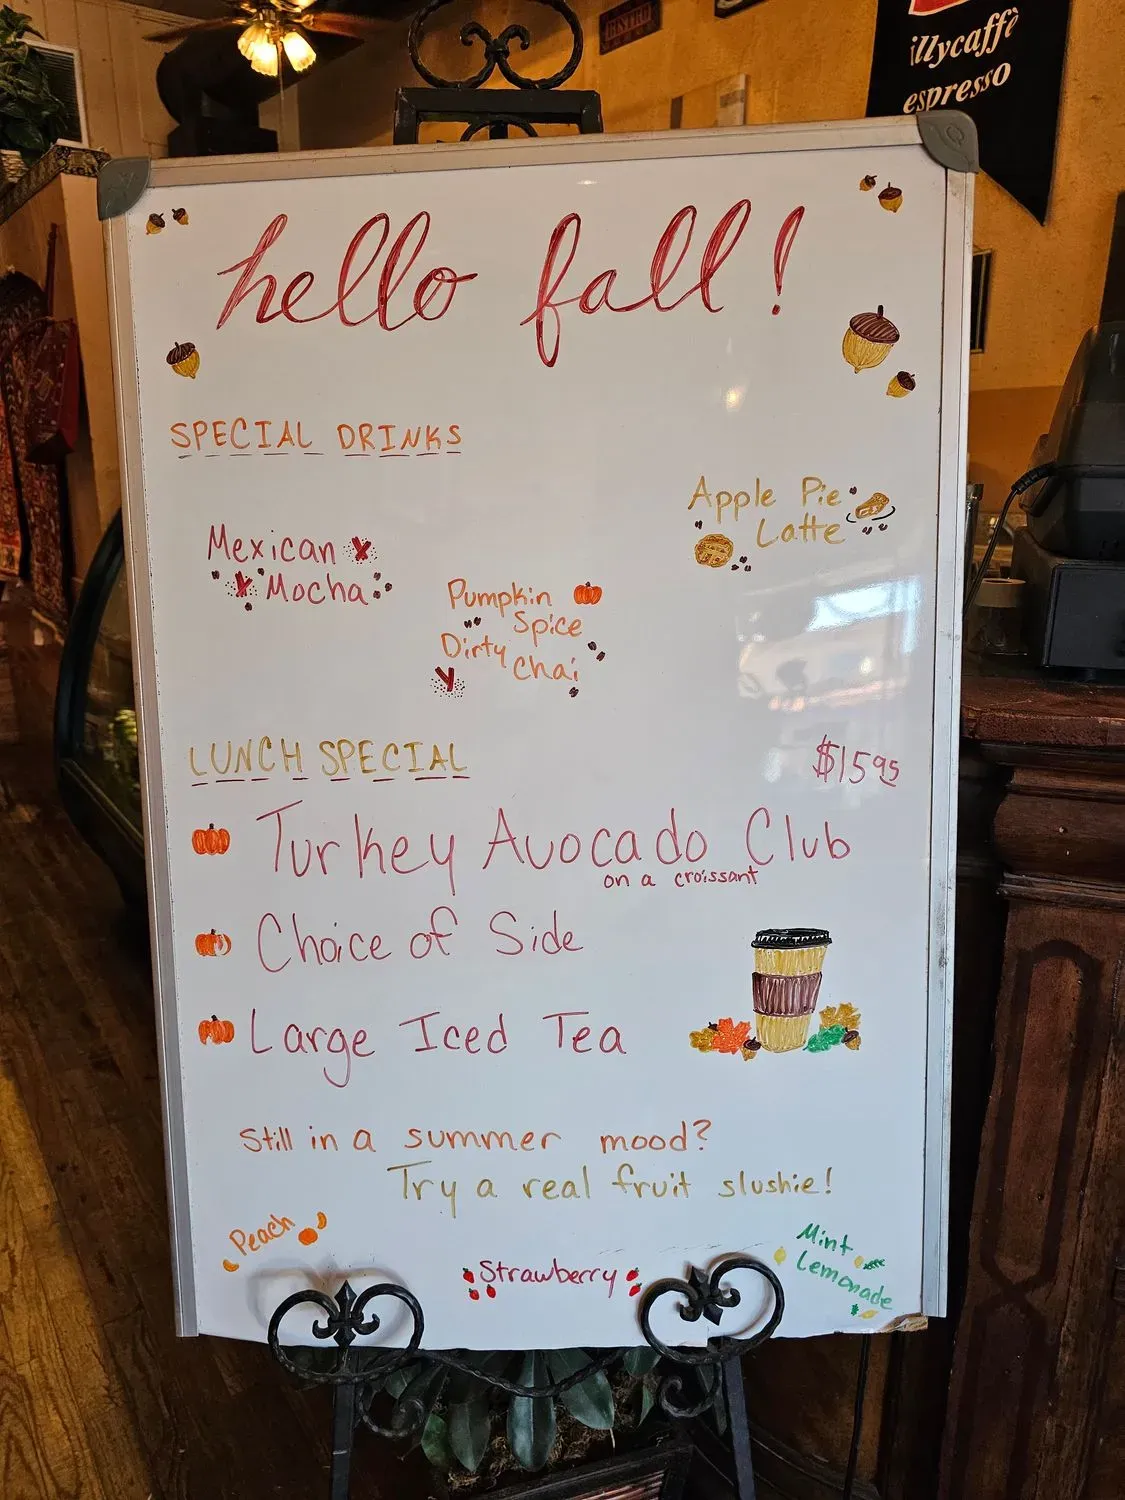 BISTRO
illycaffè
espresso
hello fall!
SPECIAL DRINKS
Mexican
Mocha
Pumpkin
Spice
Dirty Chai
Apple Pie
Latte
LUNCH SPECIAL
$15.95
Turkey Avocado Club
on a croissant
Choice of Side
Large Iced Tea
Still in a summer mood?
Try a real fruit slushie!
Peach
Strawberry
Mint
Lemonade